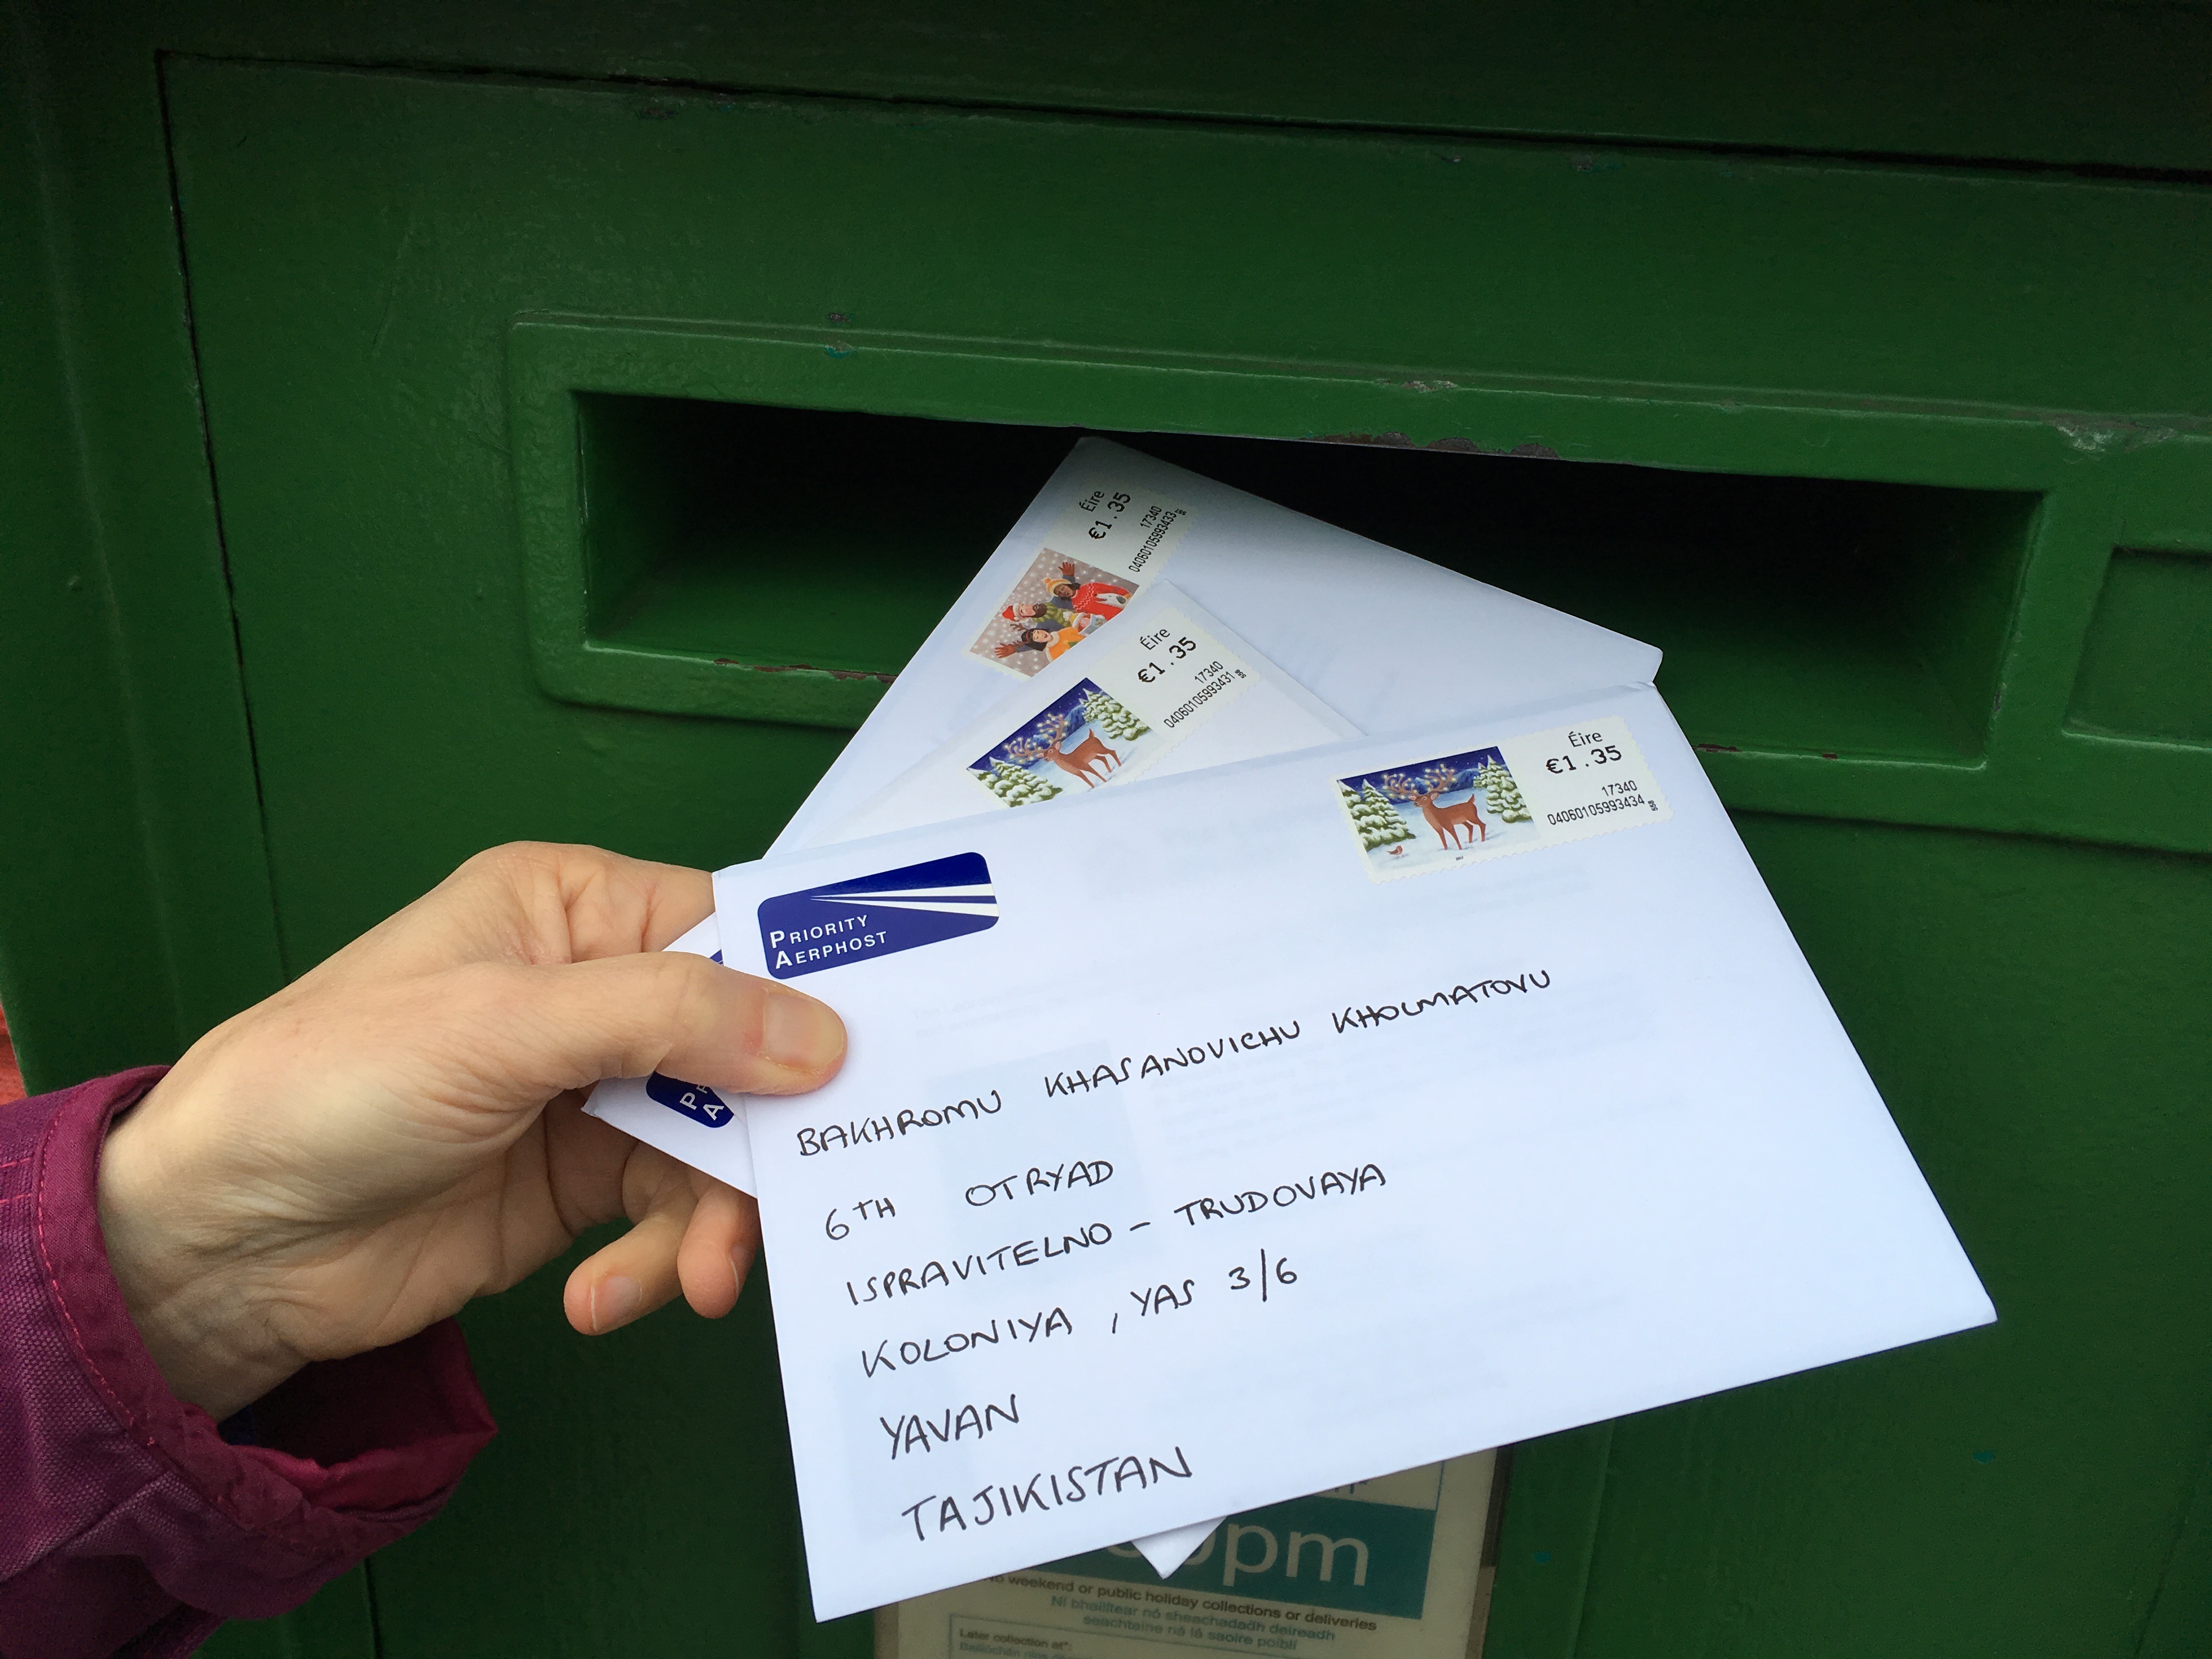 Éire
€1.35
17340
04060105993433
Éire
€1.35
17340
04060105993431
Éire
€1.35
17340
04060105993434
PRIORITY
AERPHOST
BAKHROMU KHASANOVICHU KHOLMATOVU
6TH OTRYAD
ISPRAVITELNO - TRUDOVAYA
KOLONIYA , YAS 3/6
YAVAN
TAJIKISTAN
P
A
pm
weekend or public holiday collections or deliveries
Ní bhailítear nó sheachadadh deireadh
seachtaine ná lá saoire poiblí
Later collection at*: